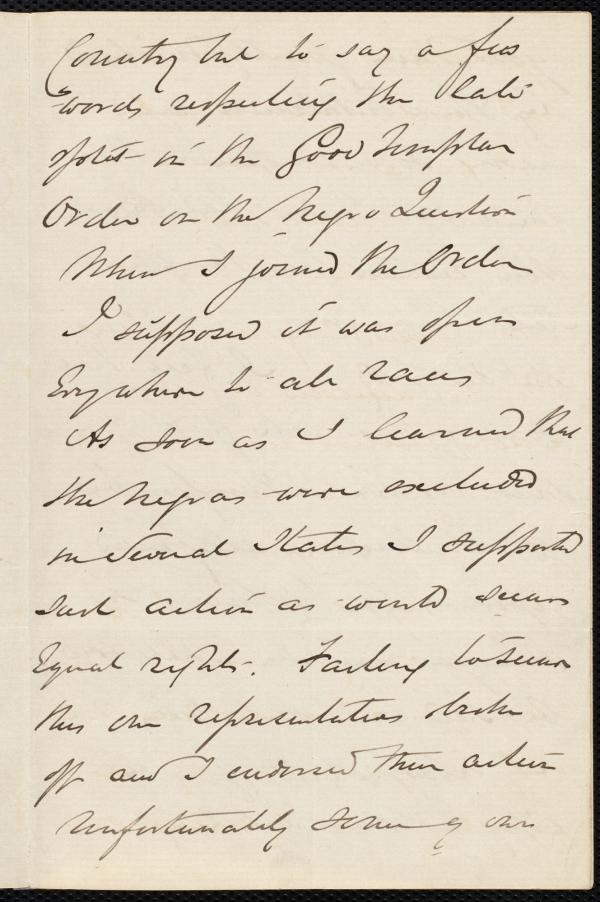 Country but to say a few
words respecting the late
split in the Good Templar
Order on the Negro Question
When I joined the Order
I supposed it was open
Everywhere to all races
As soon as I learned that
the Negroes were excluded
in Several States I supported
such action as would secure
Equal rights. Failing to secure
this our representatives broke
off and I endorsed their action
unfortunately some of our